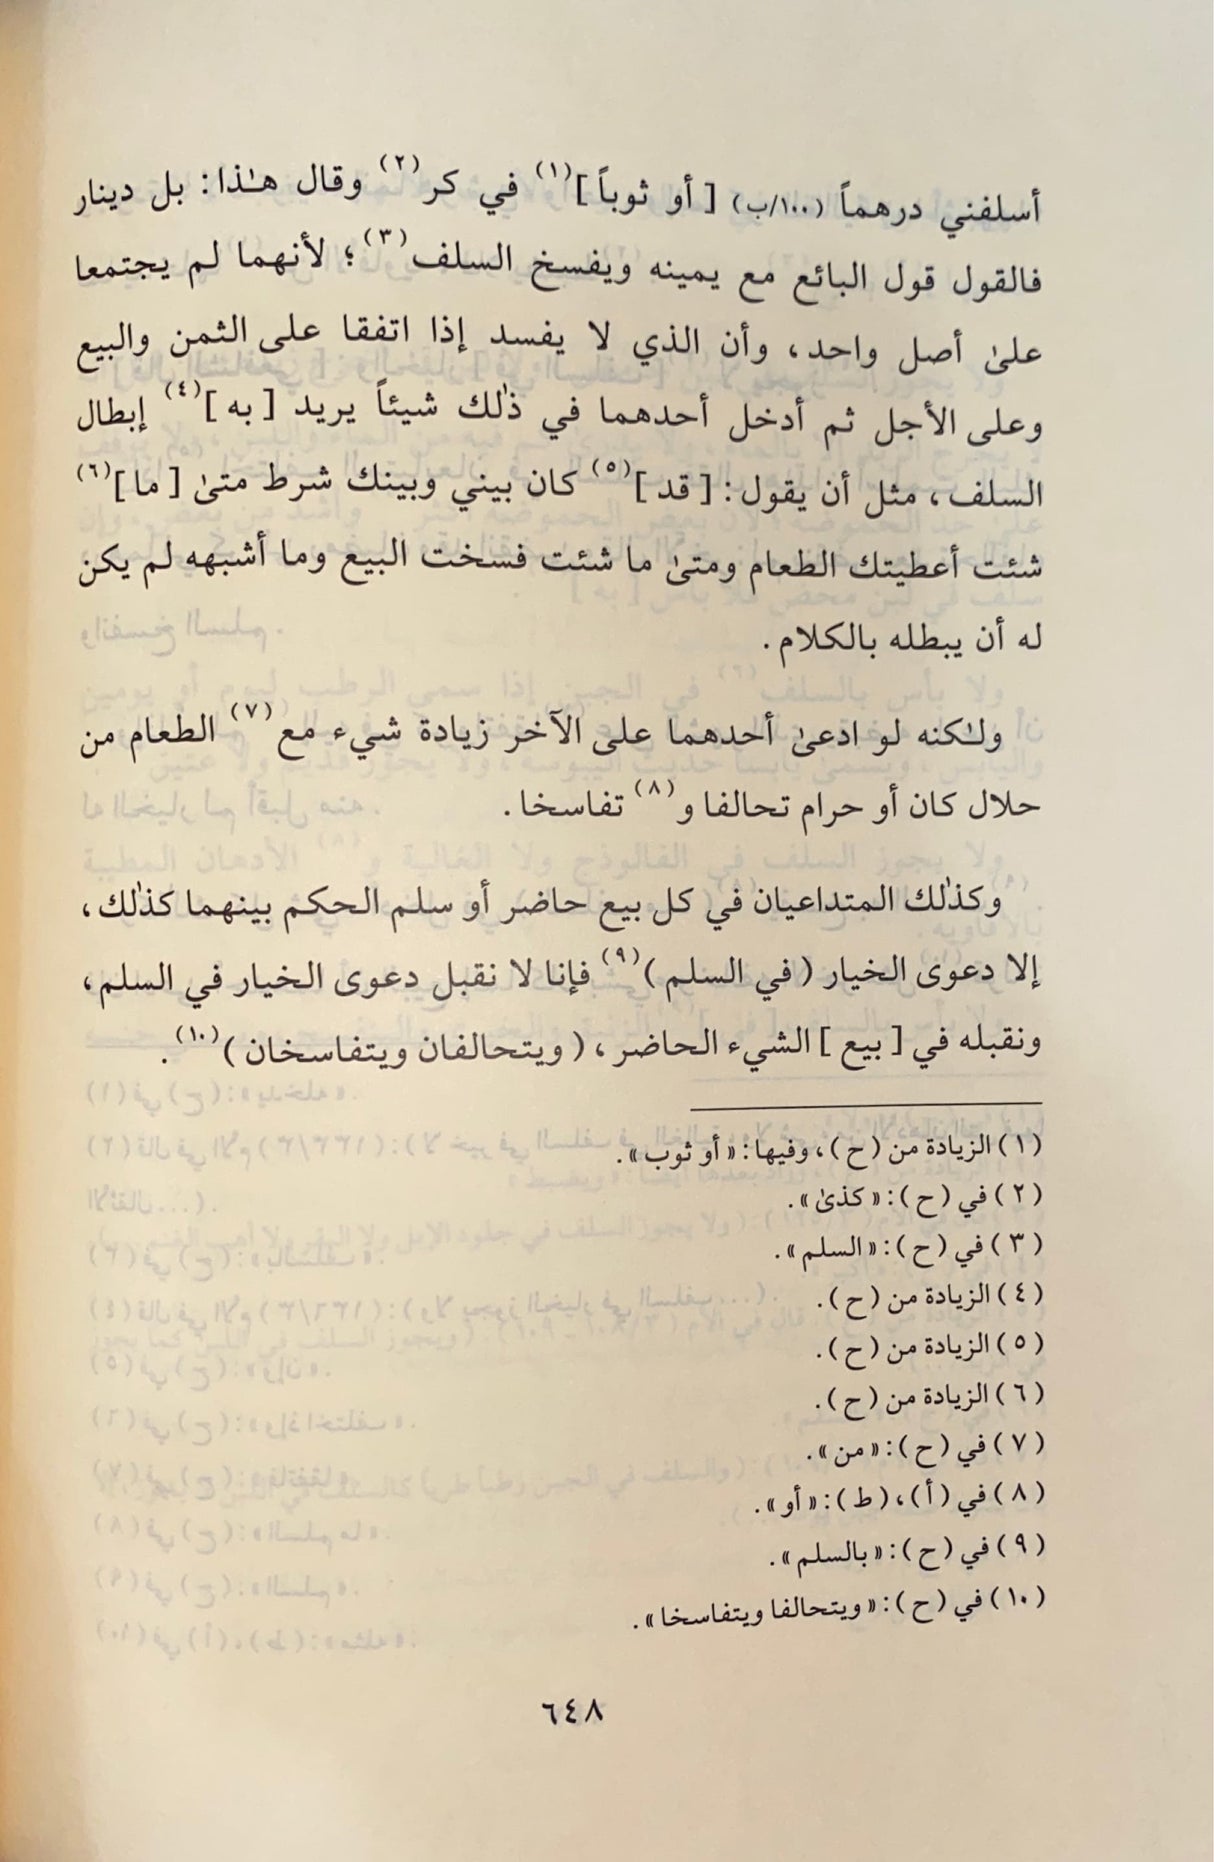 أسلفني درهماً (١٠٠/ب) [ أو ثوباً ](١) في كر(٢) وقال هـٰذا: بل دينار
فالقول قول البائع مع يمينه ويفسخ السلف(٣)؛ لأنهما لم يجتمعا
علىٰ أصل واحد، وأن الذي لا يفسد إذا اتفقا على الثمن والبيع
وعلى الأجل ثم أدخل أحدهما في ذٰلك شيئاً يريد [ به ](٤) إبطال
السلف، مثل أن يقول: [ قد ](٥) كان بيني وبينك شرط متىٰ [ ما ](٦)
شئت أعطيتك الطعام ومتىٰ ما شئت فسخت البيع وما أشبهه لم يكن
له أن يبطله بالكلام.
ولـٰكنه لو ادعىٰ أحدهما على الآخر زيادة شيء مع(٧) الطعام من
حلال كان أو حرام تحالفا و(٨) تفاسخا.
وكذٰلك المتداعيان في كل بيع حاضر أو سلم الحكم بينهما كذٰلك،
إلا دعوى الخيار ( في السلم )(٩) فإنا لا نقبل دعوى الخيار في السلم،
ونقبله في [ بيع ] الشيء الحاضر، ( ويتحالفان ويتفاسخان )(١٠).
(١) الزيادة من (ح)، وفيها: «أو ثوب».
(٢) في (ح): «كذىٰ».
(٣) في (ح): «السلم».
(٤) الزيادة من (ح).
(٥) الزيادة من (ح).
(٦) الزيادة من (ح).
(٧) في (ح): «من».
(٨) في (أ)، (ط): «أو».
(٩) في (ح): «بالسلم».
(١٠) في (ح): «ويتحالفا ويتفاسخا».
٦٤٨